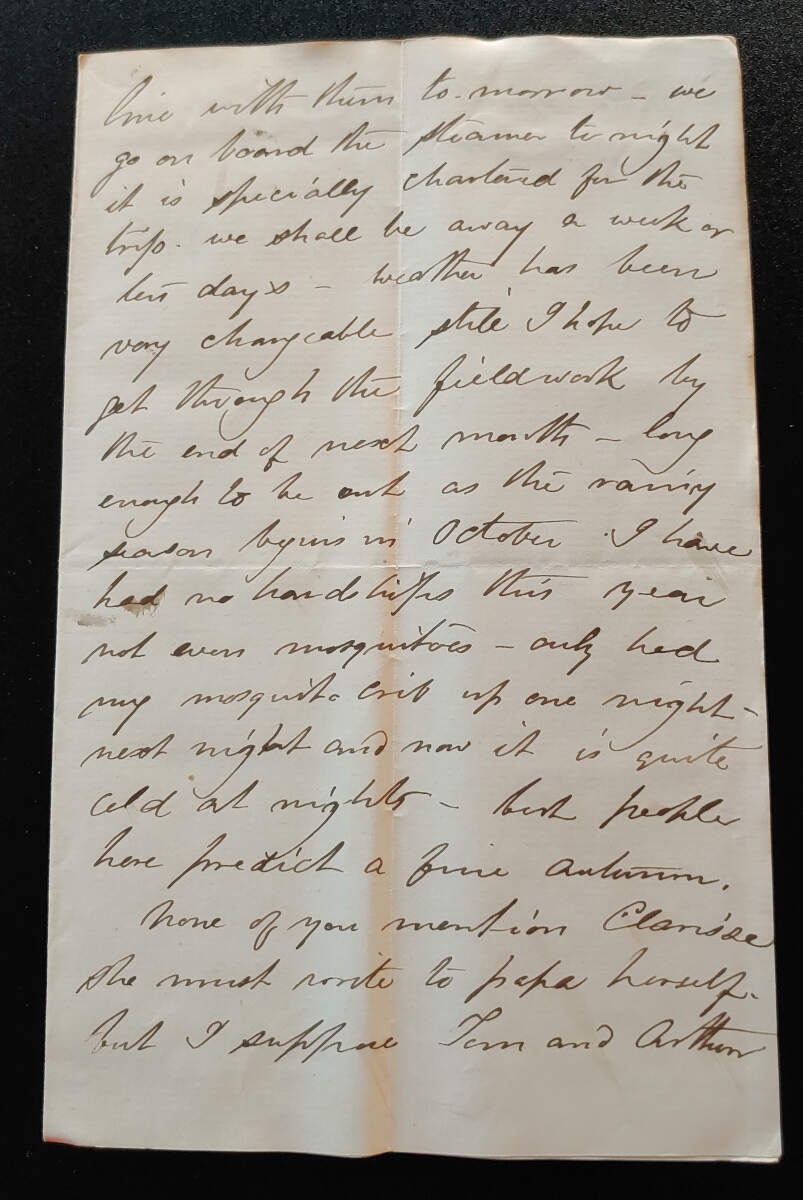 line with them to-morrow - we
go on board the steamer to night
it is specially chartered for the
trip. we shall be away a week or
ten days - weather has been
very changeable still I hope to
get through the fieldwork by
the end of next month - long
enough to be out as the rainy
season begins in October. I have
had no hardships this year
not even mosquitoes - only had
my mosquito crib up one night -
next night and now it is quite
cold at nights - but people
here predict a fine autumn.
None of you mention Clarisse
she must write to papa herself -
but I suppose Tom and Arthur